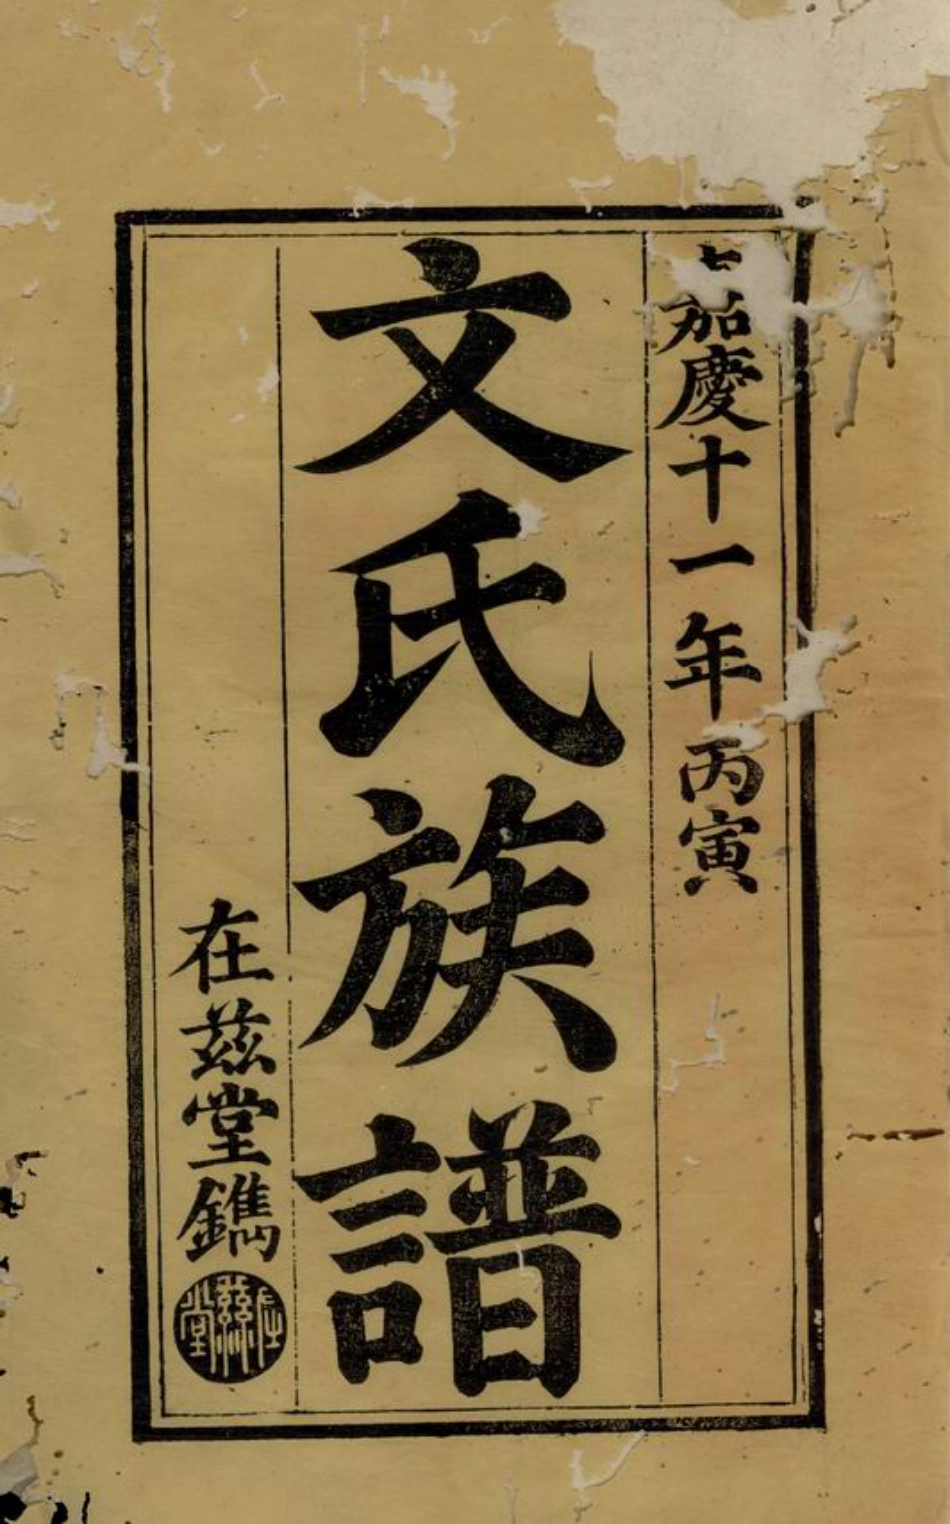 嘉慶十一年丙寅
文氏族譜
在茲堂鐫
在茲堂